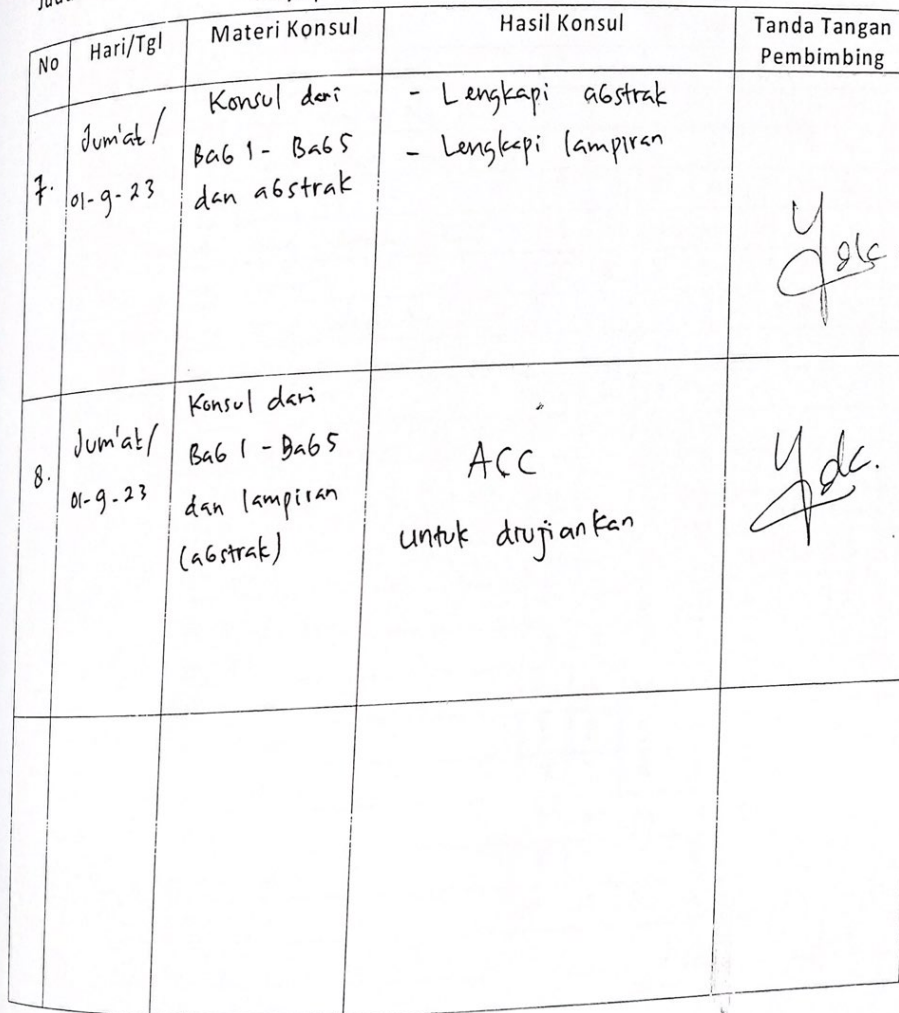 No Hari/Tgl Materi Konsul Hasil Konsul Tanda Tangan Pembimbing
7.
Jum'at /
01-9-23
Konsul dari
Bab 1 - Bab 5
dan abstrak
- Lengkapi abstrak
- Lengkapi lampiran
8.
Jum'at /
01-9-23
Konsul dari
Bab 1 - Bab 5
dan lampiran
(abstrak)
ACC
untuk diujiankan